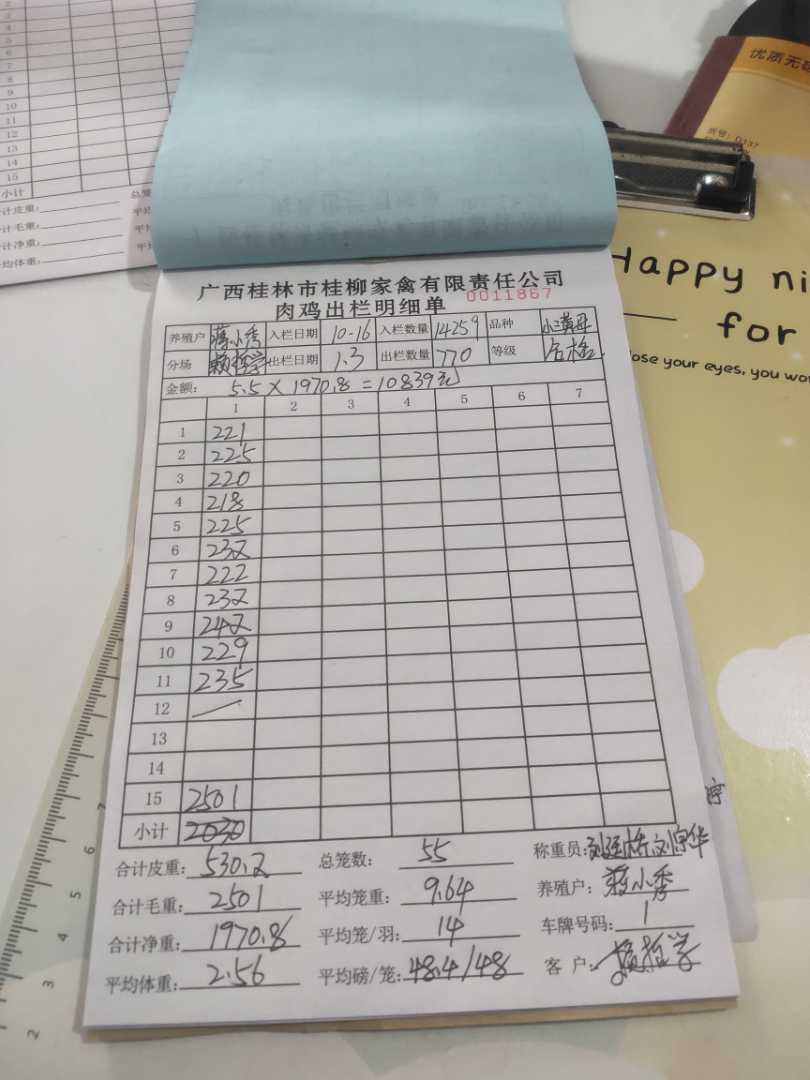 2
3
4
5
6
7
8
9
10
11
12
13
14
15
小计
计皮重:
计毛重:
计净重:
均体重:
总笼
平均
平均
平均
优质无
Happy ni
for
lose your eyes, you wo
广西桂林市桂柳家禽有限责任公司
肉鸡出栏明细单 0011867
养殖户 蒋小秀 入栏日期 10-16 入栏数量 14259 品种
分场 赖哲学 出栏日期 1.3 出栏数量 770 等级 合格
金额: 5.5×1970.8=10839元
1 2 3 4 5 6 7
1 221
2 225
3 220
4 218
5 225
6 232
7 222
8 232
9 242
10 229
11 235
12
13
14
15 2501
小计 2030
合计皮重: 530.2 总笼数: 55 称重员:
合计毛重: 2501 平均笼重: 9.64 养殖户: 蒋小秀
合计净重: 1970.8 平均笼/羽: 14 车牌号码: 1
平均体重: 2.56 平均磅/笼: 48.4/48 客户: 赖哲学